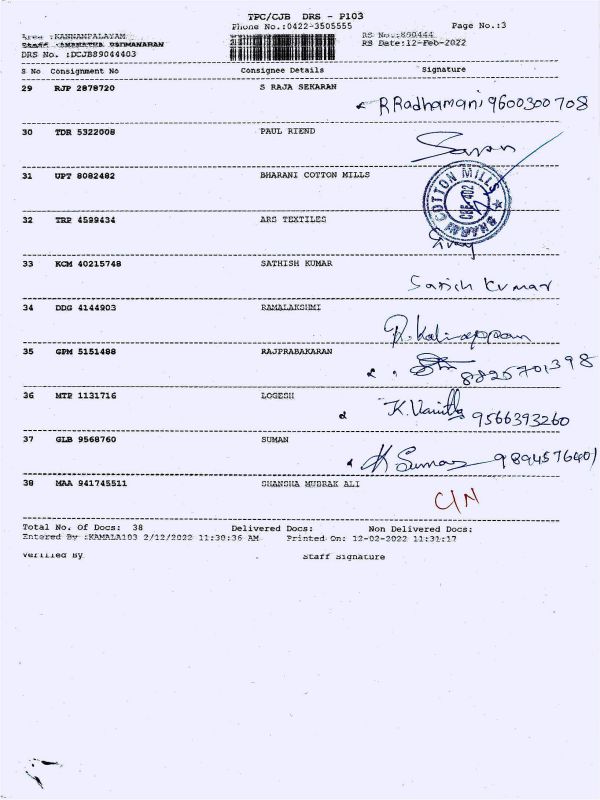 TPC/CJB DRS - P103
Phone No.:0422-3505555 Page No.:3
Area :KANNANPALAYAM RS No.:890444
Staff : PADMANABAN RS Date:12-Feb-2022
DRS No. :DCJB89044403
S No Consignment No Consignee Details Signature
29 RJP 2878720 S RAJA SEKARAN
R Radhamani 9600300708
30 TDR 5322008 PAUL RIEND
31 UPT 8082482 BHARANI COTTON MILLS
BHARANI COTTON MILLS
CBE-402
32 TRP 4599434 ARS TEXTILES
33 KCM 40215748 SATHISH KUMAR
Satish Kumar
34 DDG 4144903 RAMALAKSHMI
35 GPM 5151488 RAJPRABAKARAN
8825701398
36 MTP 1131716 LOGESH
K. Vanitha 9566393260
37 GLB 9568760 SUMAN
K Suman 9894576401
38 MAA 941745511 SHANSHA MUBRAK ALI
C/N
Total No. Of Docs: 38 Delivered Docs: Non Delivered Docs:
Entered By :KAMALA103 2/12/2022 11:30:36 AM Printed On: 12-02-2022 11:31:17
Verified By Staff Signature